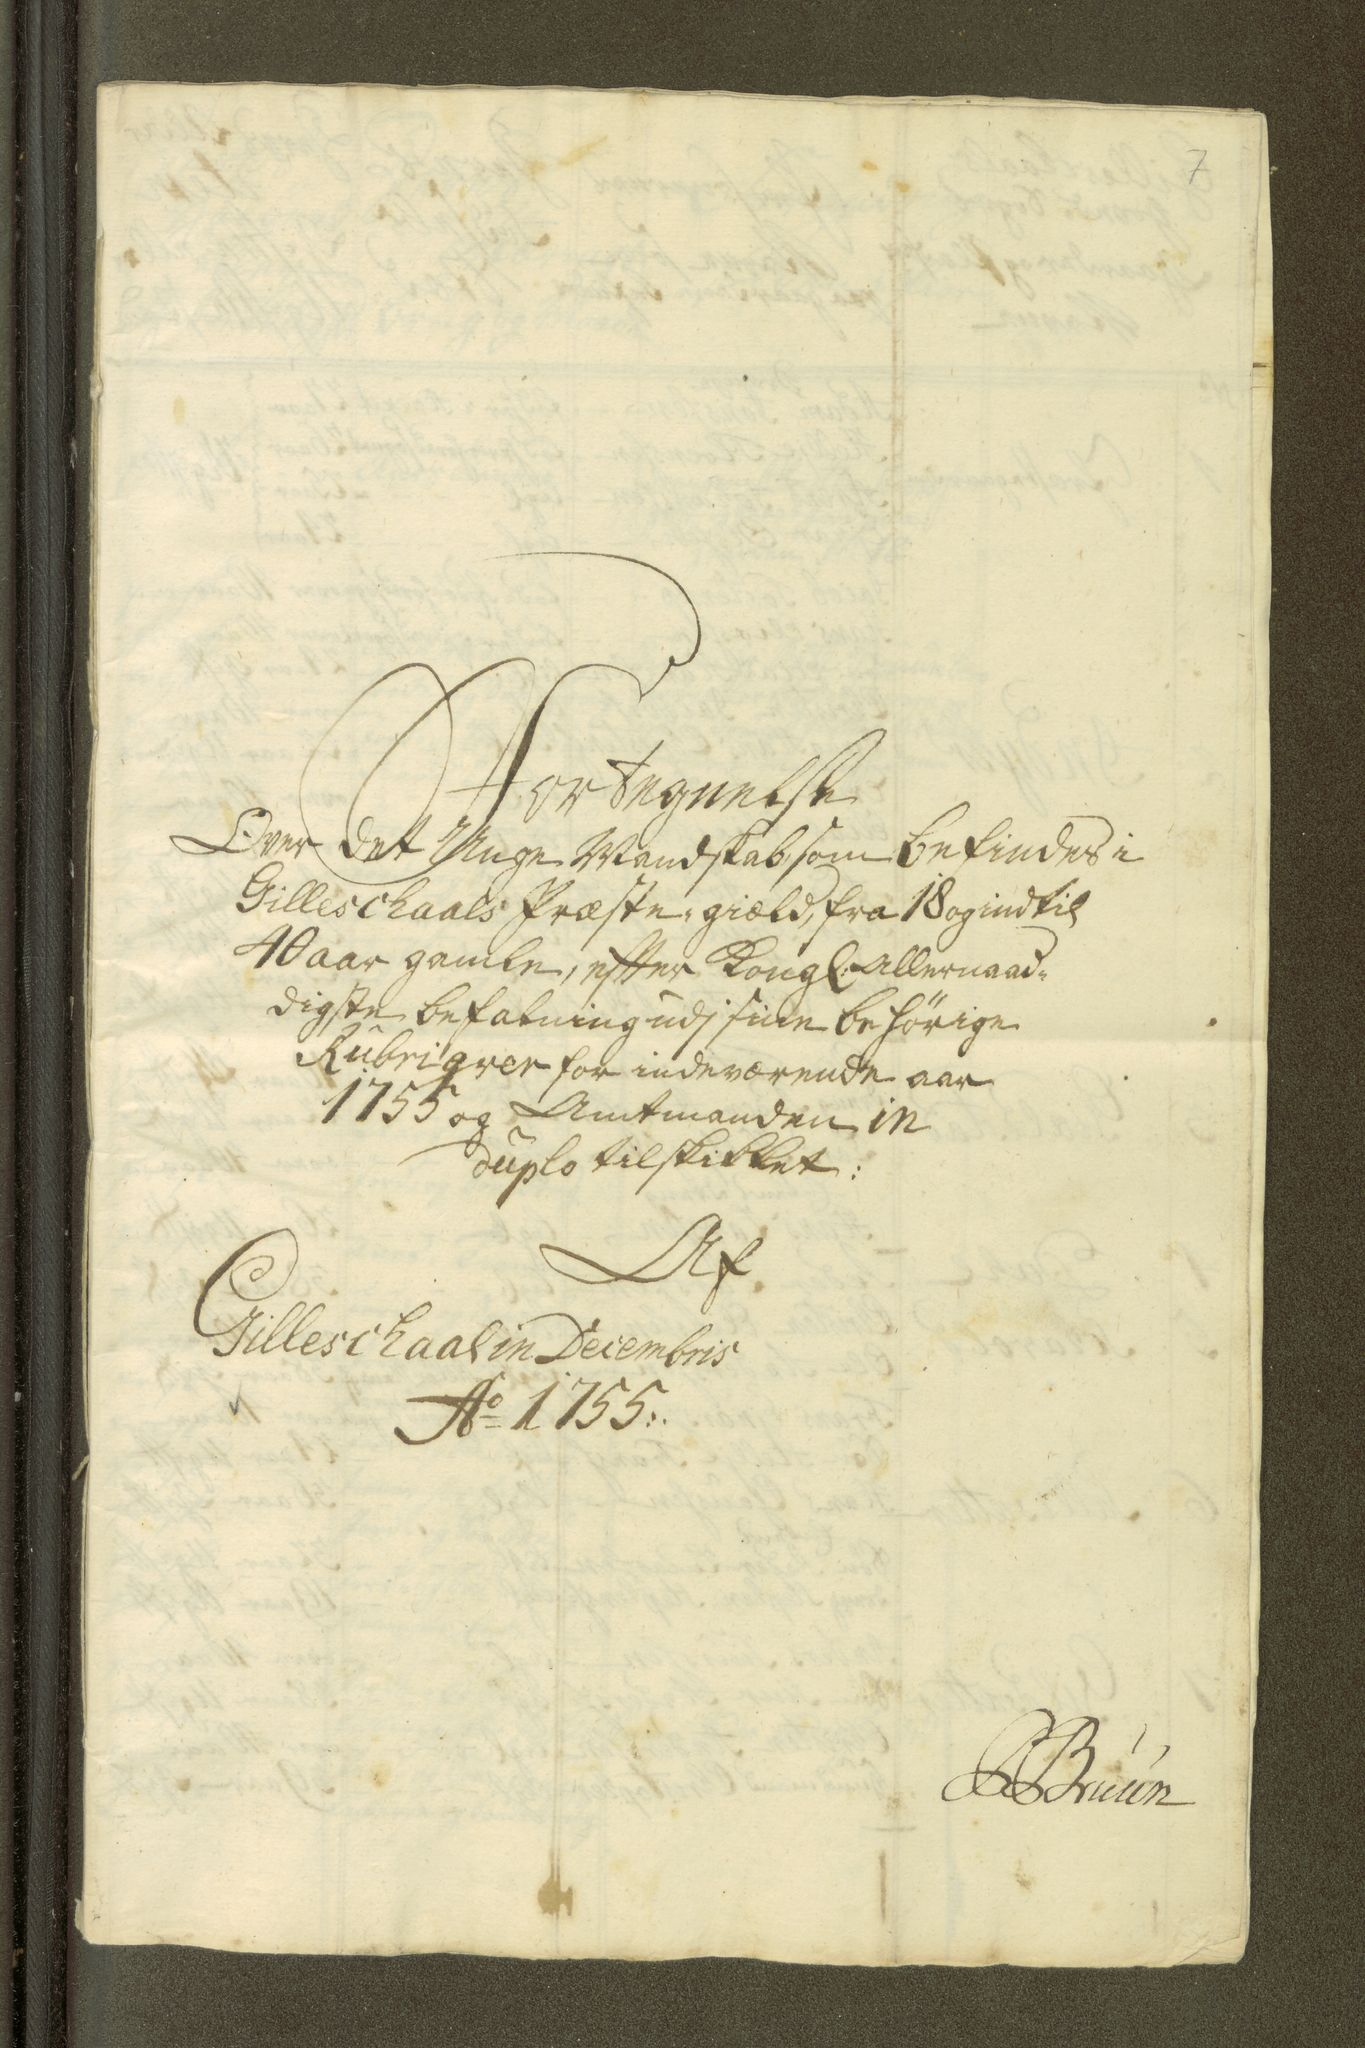 7
Fortegnelse
Over det Unge Mandskab som befindes i
Gilleschaals Præste-gield, fra 18 og indtil
40 aar gamle, efter Kongl: Allernaad=
digste befalning udj sine behörige
Rubriqver for indeværende aar
1755 og Amtmanden in
duplo tilskikket:
Af
Gilleschaal in Decembris
Ao 1755:.
Bruun